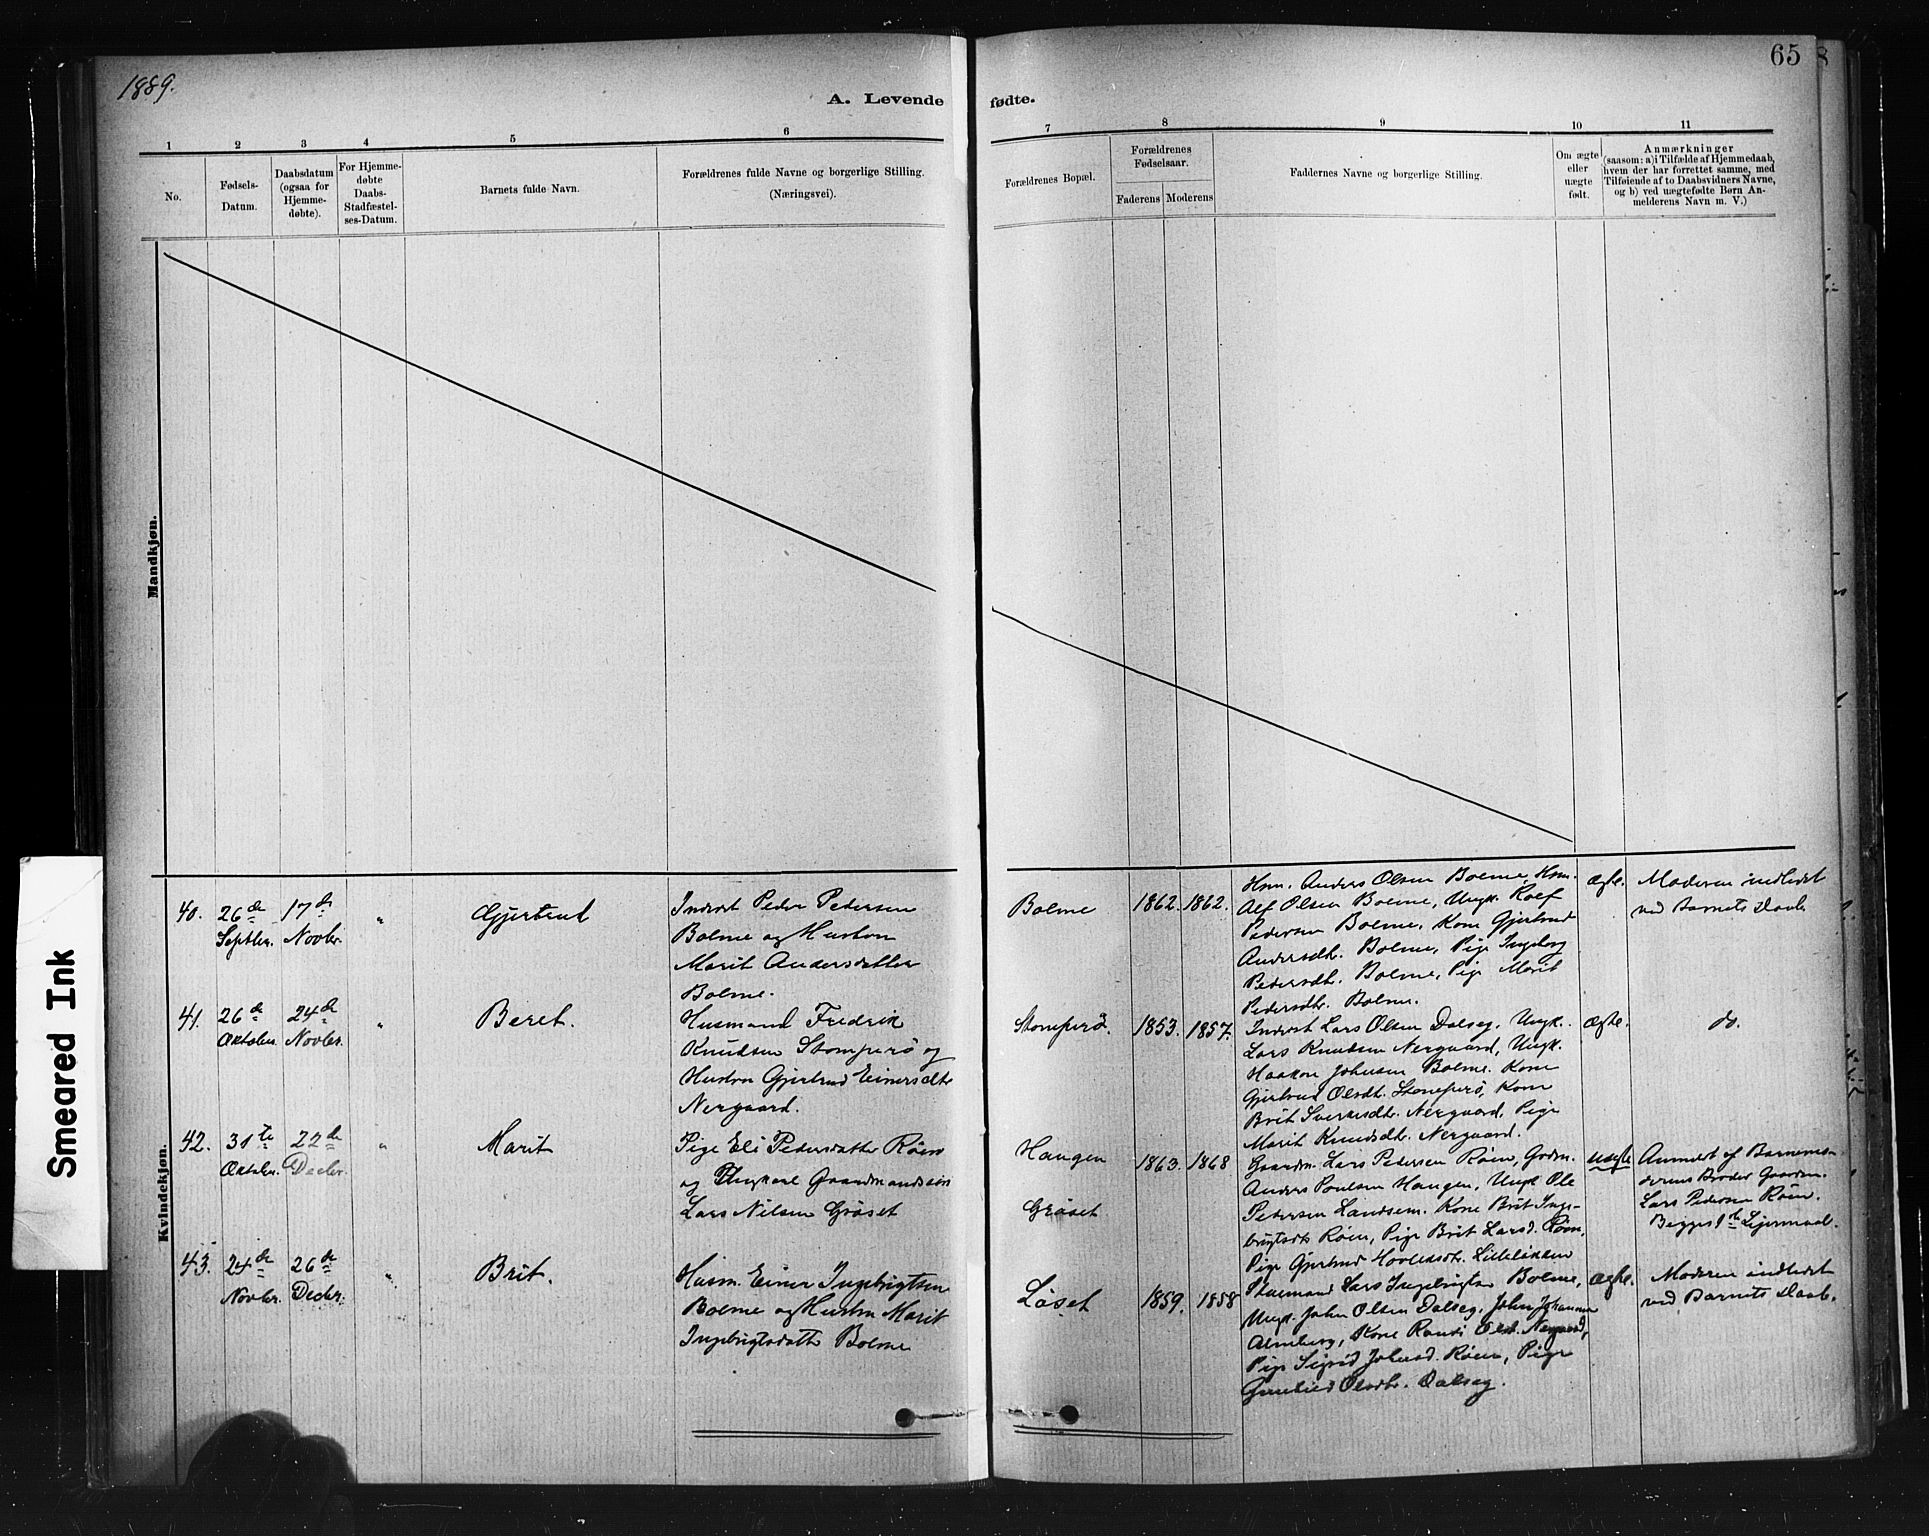 1889.
65
A. Levende fødte.
1 2 3 4 5 6 7 8 9 10 11
No.
Fødsels-
Datum.
Daabsdatum
(ogsaa for
Hjemme-
døbte).
For Hjemme-
døbte
Daabs-
Stadfæstel-
ses-Datum.
Barnets fulde Navn.
Forældrenes fulde Navne og borgerlige Stilling.
(Næringsvei).
Forældrenes Bopæl.
Forældrenes
Fødselsaar.
Faderens Moderens
Faddernes Navne og borgerlige Stilling.
Om ægte
eller
uægte
født.
Anmærkninger
(saasom: a) i Tilfælde af Hjemmedaab,
hvem der har forrettet samme, med
Tilføiende af to Daabsvidners Navne,
og b) ved uægtefødte Børn An-
melderens Navn m. V.)
Mandkjøn.
Kvindekjøn.
40.
26de
Septbr.
17de
Novbr.
"
Gjertrud
Inderst Peder Pedersen
Bolme og Hustru
Marit Andersdatter
Bolme.
Bolme
1862. 1862.
Hsm. Anders Olsen Bolme, Hsm.
Alf Olsen Bolme, Ungk. Rolf
Pedersen Bolme, Kone Gjertrud
Andersdtr. Bolme, Pige Ingeborg
Pedersdtr. Bolme, Pige Marit
Pedersdtr. Bolme.
Ægte.
Moderen indledet
ved Barnets Daab
41.
26de
Oktober.
24de
Novbr.
"
Beret.
Husmand Fredrik
Knudsen Stomperø og
Hustru Gjertrud Einersdtr
Nergaard.
Stomperø.
1853. 1857.
Inderst Lars Olsen Dalseg, Ungk.
Lars Knudsen Nergaard, Ungk.
Haakon Johnsen Bolme. Kone
Gjertrud Olsdtr. Stomperø, Kone
Brit Sversdtr. Nergaard, Pige
Marit Knudsdtr. Nergaard.
Ægte.
do.
42.
31te
Oktober.
22de
Decbr.
"
Marit
Pige Eli Pedersdatter Røen
og Ungkarl Gaardmandssøn
Lars Nilsen Grøset
Haugen
Grøset
1863. 1868
Gaardm. Lars Pedersen Røen, Gaardm.
Anders Poulsen Haugen, Ungk Ole
Pedersen Landsem. Kone Brit Inge-
brigtsdtr Røen, Pige Brit Larsd. Røen,
Pige Gjertrud Hovelsdtr. Lilleløkken
uægte
Anmeldt af Barnemo-
derens Broder Gaardm.
Lars Pedersen Røen.
Begges 1ste Leiermaal.
43.
24de
Novbr.
26de
Decbr.
"
Brit.
Husm. Einer Ingebrigtsen
Bolme og Hustru Marit
Ingebrigtsdatter Bolme
Løset
1859. 1858
Lars Ingebrigtsen Bolme,
Ungk. John Olsen Dalseg, John Johannsen
Almberg, Kone Randi Olsd. Nergaard,
Pige Sigrid Johnsd. Røen, Pige
Gunhild Olsdtr. Dalseg.
Ægte.
Moderen indledet
ved Barnets Daab.
Smeared Ink